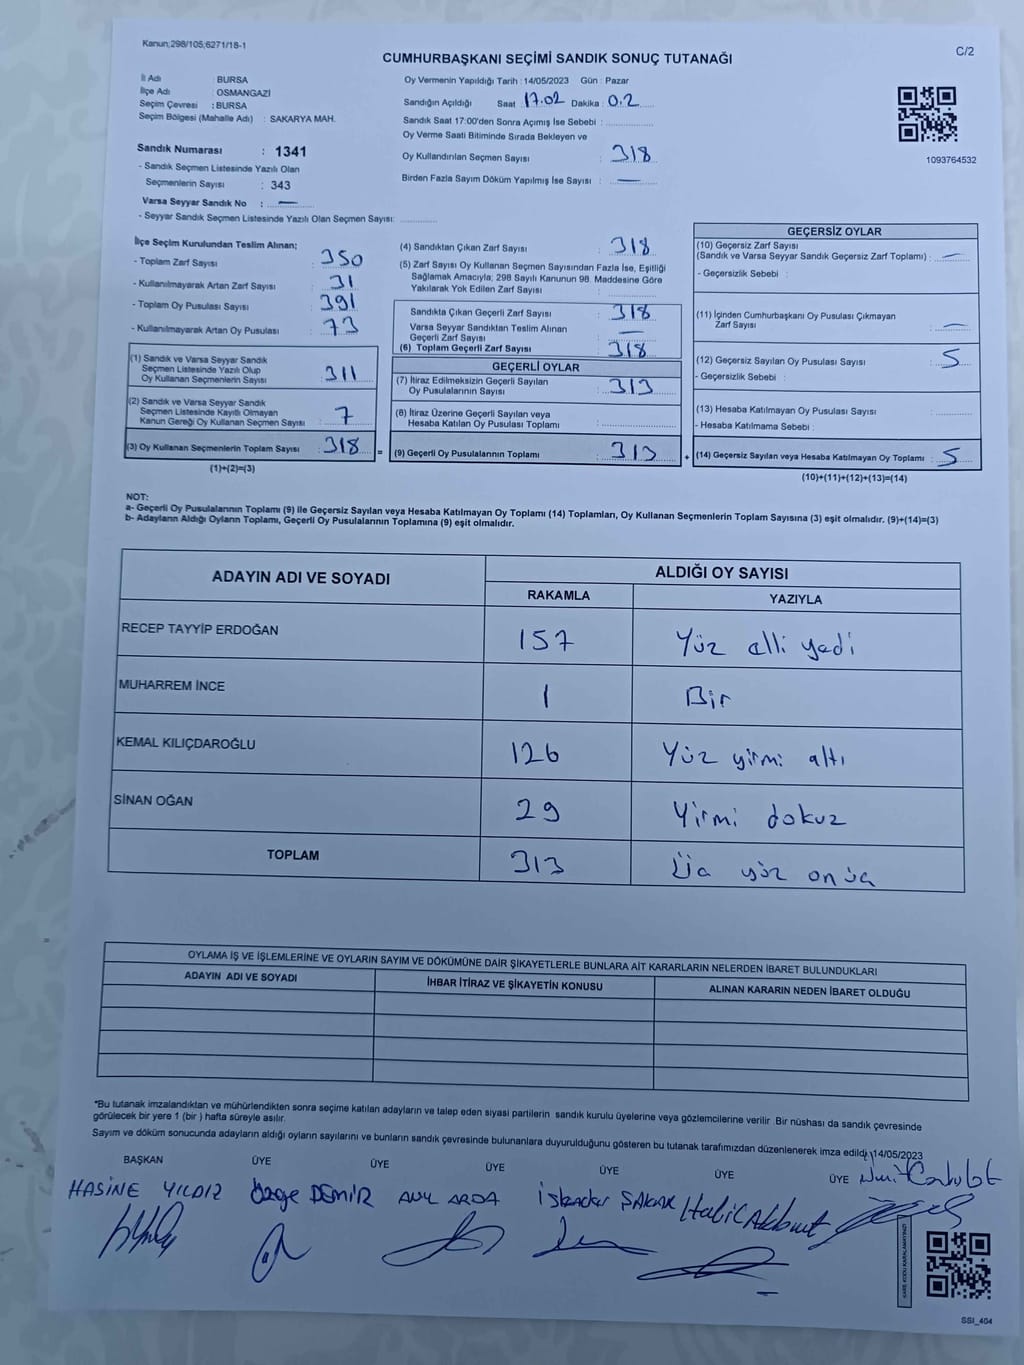 Kanun;298/105;6271/18-1
C/2
CUMHURBAŞKANI SEÇİMİ SANDIK SONUÇ TUTANAĞI
İl Adı : BURSA
İlçe Adı : OSMANGAZİ
Seçim Çevresi : BURSA
Seçim Bölgesi (Mahalle Adı) : SAKARYA MAH.
Sandık Numarası : 1341
- Sandık Seçmen Listesinde Yazılı Olan
Seçmenlerin Sayısı : 343
Varsa Seyyar Sandık No : —
- Seyyar Sandık Seçmen Listesinde Yazılı Olan Seçmen Sayısı:
Oy Vermenin Yapıldığı Tarih : 14/05/2023 Gün : Pazar
Sandığın Açıldığı Saat 17:02 Dakika : 0.2
Sandık Saat 17:00'den Sonra Açımış İse Sebebi :
Oy Verme Saati Bitiminde Sırada Bekleyen ve
Oy Kullandırılan Seçmen Sayısı : 318
Birden Fazla Sayım Döküm Yapılmış İse Sayısı : —
1093764532
İlçe Seçim Kurulundan Teslim Alınan;
- Toplam Zarf Sayısı : 350
- Kullanılmayarak Artan Zarf Sayısı : 31
- Toplam Oy Pusulası Sayısı : 391
- Kullanılmayarak Artan Oy Pusulası : 73
(1) Sandık ve Varsa Seyyar Sandık
Seçmen Listesinde Yazılı Olup
Oy Kullanan Seçmenlerin Sayısı : 311
(2) Sandık ve Varsa Seyyar Sandık
Seçmen Listesinde Kayıtlı Olmayan
Kanun Gereği Oy Kullanan Seçmen Sayısı : 7
(3) Oy Kullanan Seçmenlerin Toplam Sayısı : 318
(1)+(2)=(3)
(4) Sandıktan Çıkan Zarf Sayısı : 318
(5) Zarf Sayısı Oy Kullanan Seçmen Sayısından Fazla İse, Eşitliği
Sağlamak Amacıyla; 298 Sayılı Kanunun 98. Maddesine Göre
Yakılarak Yok Edilen Zarf Sayısı :
Sandıkta Çıkan Geçerli Zarf Sayısı : 318
Varsa Seyyar Sandıktan Teslim Alınan
Geçerli Zarf Sayısı : —
(6) Toplam Geçerli Zarf Sayısı : 318
=
GEÇERLİ OYLAR
(7) İtiraz Edilmeksizin Geçerli Sayılan
Oy Pusulalarının Sayısı : 313
(8) İtiraz Üzerine Geçerli Sayılan veya
Hesaba Katılan Oy Pusulası Toplamı :
(9) Geçerli Oy Pusulalarının Toplamı : 313
+
GEÇERSİZ OYLAR
(10) Geçersiz Zarf Sayısı
(Sandık ve Varsa Seyyar Sandık Geçersiz Zarf Toplamı) : —
- Geçersizlik Sebebi :
(11) İçinden Cumhurbaşkanı Oy Pusulası Çıkmayan
Zarf Sayısı : —
(12) Geçersiz Sayılan Oy Pusulası Sayısı : 5
- Geçersizlik Sebebi :
(13) Hesaba Katılmayan Oy Pusulası Sayısı :
- Hesaba Katılmama Sebebi :
(14) Geçersiz Sayılan veya Hesaba Katılmayan Oy Toplamı : 5
(10)+(11)+(12)+(13)=(14)
NOT:
a- Geçerli Oy Pusulalarının Toplamı (9) ile Geçersiz Sayılan veya Hesaba Katılmayan Oy Toplamı (14) Toplamları, Oy Kullanan Seçmenlerin Toplam Sayısına (3) eşit olmalıdır. (9)+(14)=(3)
b- Adayların Aldığı Oyların Toplamı, Geçerli Oy Pusulalarının Toplamına (9) eşit olmalıdır.
ADAYIN ADI VE SOYADI
ALDIĞI OY SAYISI
RAKAMLA YAZIYLA
RECEP TAYYİP ERDOĞAN 157 Yüz elli yedi
MUHARREM İNCE 1 Bir
KEMAL KILIÇDAROĞLU 126 Yüz yirmi altı
SİNAN OĞAN 29 Yirmi dokuz
TOPLAM 313 Üç yüz on üç
OYLAMA İŞ VE İŞLEMLERİNE VE OYLARIN SAYIM VE DÖKÜMÜNE DAİR ŞİKAYETLERLE BUNLARA AİT KARARLARIN NELERDEN İBARET BULUNDUKLARI
ADAYIN ADI VE SOYADI İHBAR İTİRAZ VE ŞİKAYETİN KONUSU ALINAN KARARIN NEDEN İBARET OLDUĞU
*Bu tutanak imzalandıktan ve mühürlendikten sonra seçime katılan adayların ve talep eden siyasi partilerin sandık kurulu üyelerine veya gözlemcilerine verilir. Bir nüshası da sandık çevresinde
görülecek bir yere 1 (bir ) hafta süreyle asılır.
Sayım ve döküm sonucunda adayların aldığı oyların sayılarını ve bunların sandık çevresinde bulunanlara duyurulduğunu gösteren bu tutanak tarafımızdan düzenlenerek imza edildi. 14/05/2023
BAŞKAN ÜYE ÜYE ÜYE ÜYE ÜYE ÜYE
HASİNE YILDIZ Özge DEMİR ANIL ARDA İskender SAKAR Halil Akbulut
SSI_404